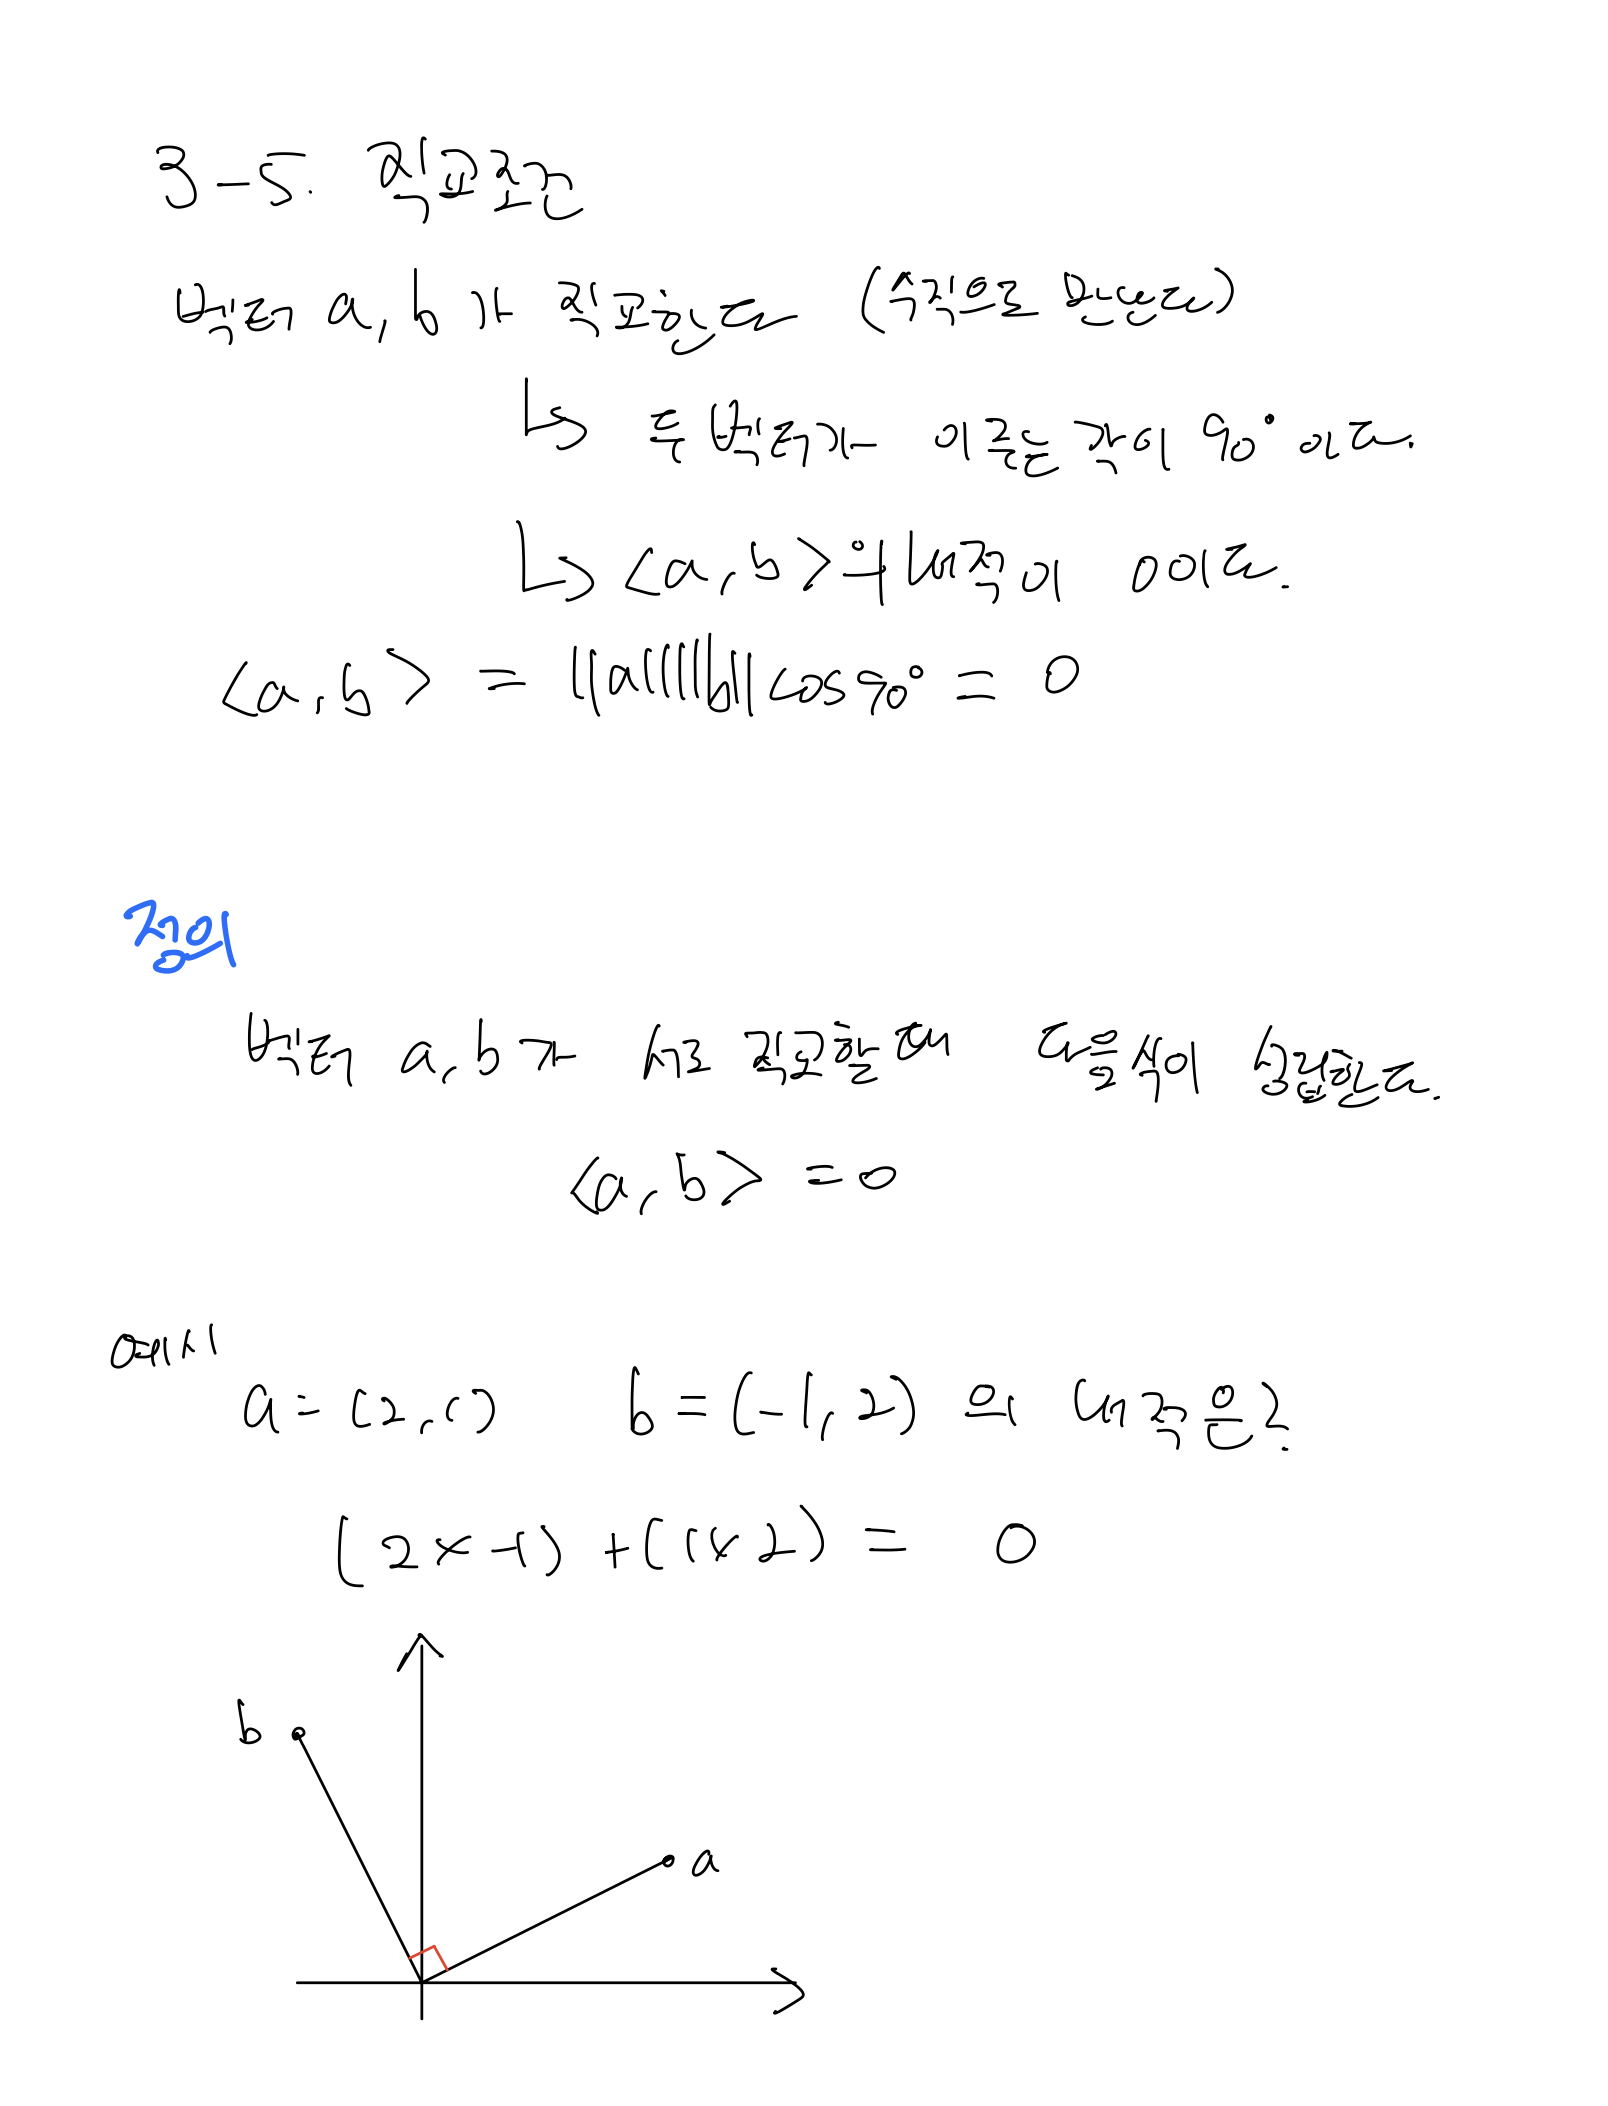 3-5. 직교조건
벡터 a, b가 직교한다 (수직으로 만난다)
↳ 두 벡터가 이루는 각이 90° 이다.
↳ <a, b>의 내적이 0이다.
<a, b> = ||a||||b||cos90° = 0
정의
벡터 a, b가 서로 직교할 때 다음 식이 성립한다.
<a, b> = 0
예시
a = (2, 1) b = (-1, 2) 의 내적은?
(2×-1) + (1×2) = 0
b
a